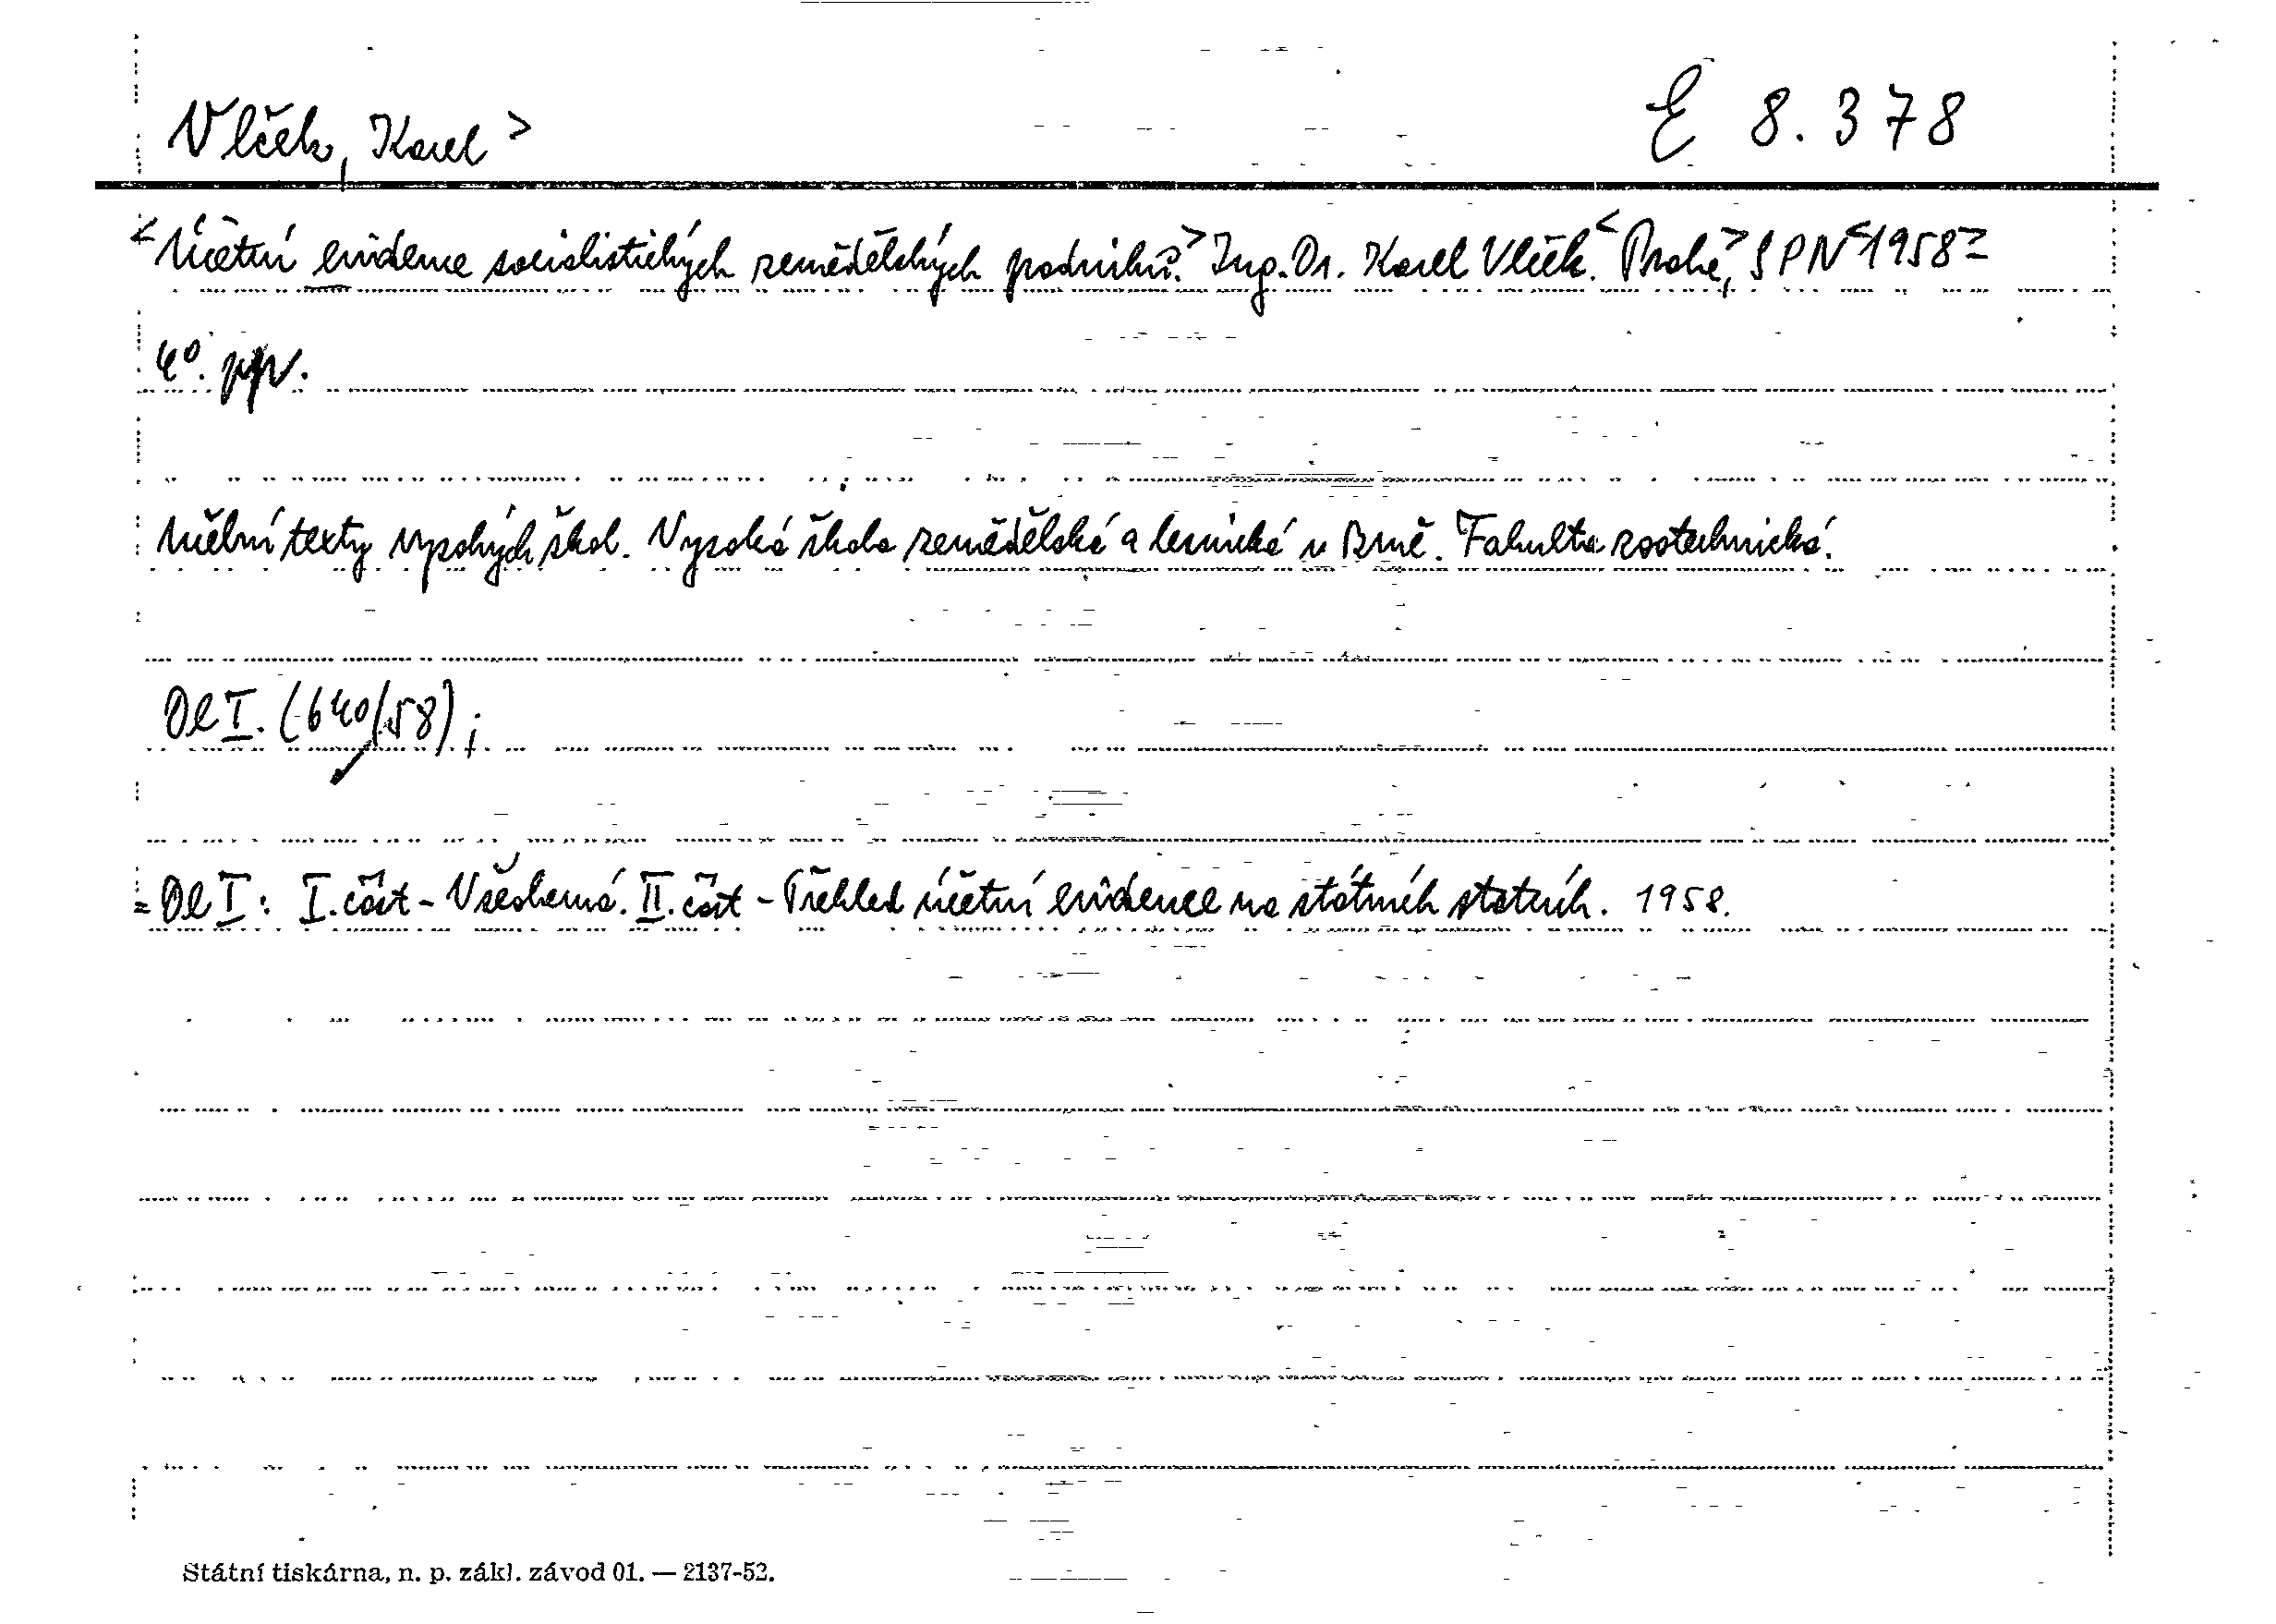 Vlček, Karel > E 8.378
<Účetní evidence socialistických zemědělských podniků.> Ing. Dr. Karel Vlček. <Praha,> SPN <1958->
4°. ppv.
Učební texty vysokých škol. Vysoká škola zemědělská a lesnická v Brně. Fakulta zootechnická.
Dl I. (640/58);
= Dl I: I. část - Všeobecná. II. část - Přehled účetní evidence na státních statcích. 1958.
Státní tiskárna, n. p. zákl. závod 01. — 2137-52.